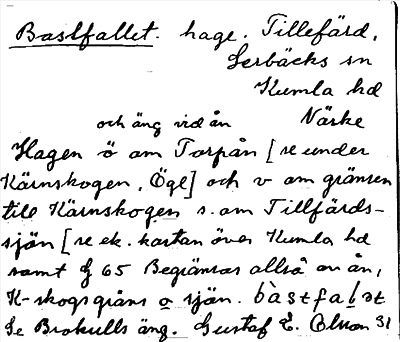 Bastfallet. hage. Tillefärd,
Lerbäcks sn
Kumla hd
och äng vid ån Närke
Hagen ö om Torpån [se under
Kärnskogen, Ögl] och v om gränsen
till Kärnskogen s. om Tillfärds-
sjön [se ek. kartan över Kumla hd
samt § 65 Begränsas alltså av ån,
K-skogsgräns o sjön. bàstfalət
Se Brokulls äng. Gustaf E. Olsson 31